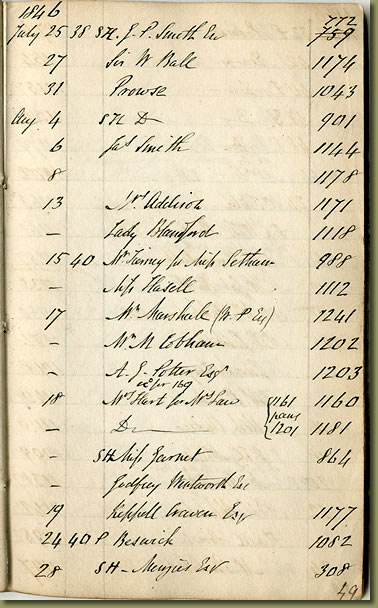 1846
772
July 25 38 SH. J. P. Smith Esq 759
27 Sir W Ball 1174
31 Prowse 1043
Aug 4 SH D 901
6 Jas Smith 1144
8 1178
13 Mrs Addison 1171
— Lady Blandford 1118
15 40 Mr Tierney for Miss Letham 988
— Miss Hasell 1112
17 Mr Marshall (W. P Esq) 1241
— Mr M Cobham 1202
— A. J. Potter Esqr 1203
for 169
18 Mrs Hart for Mr Law 1161 1160
pans
— D 1201 1181
— SH Miss Garnet 864
— Godfrey Wentworth Esq
19 Keppell Craven Esqr 1177
24 40 P Beswick 1082
28 SH - Menzies Esqr 308
49